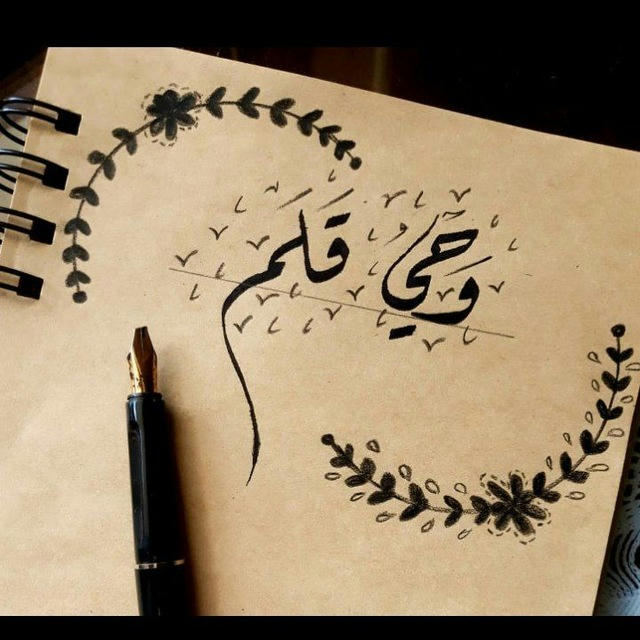 وَحْي قَلَم